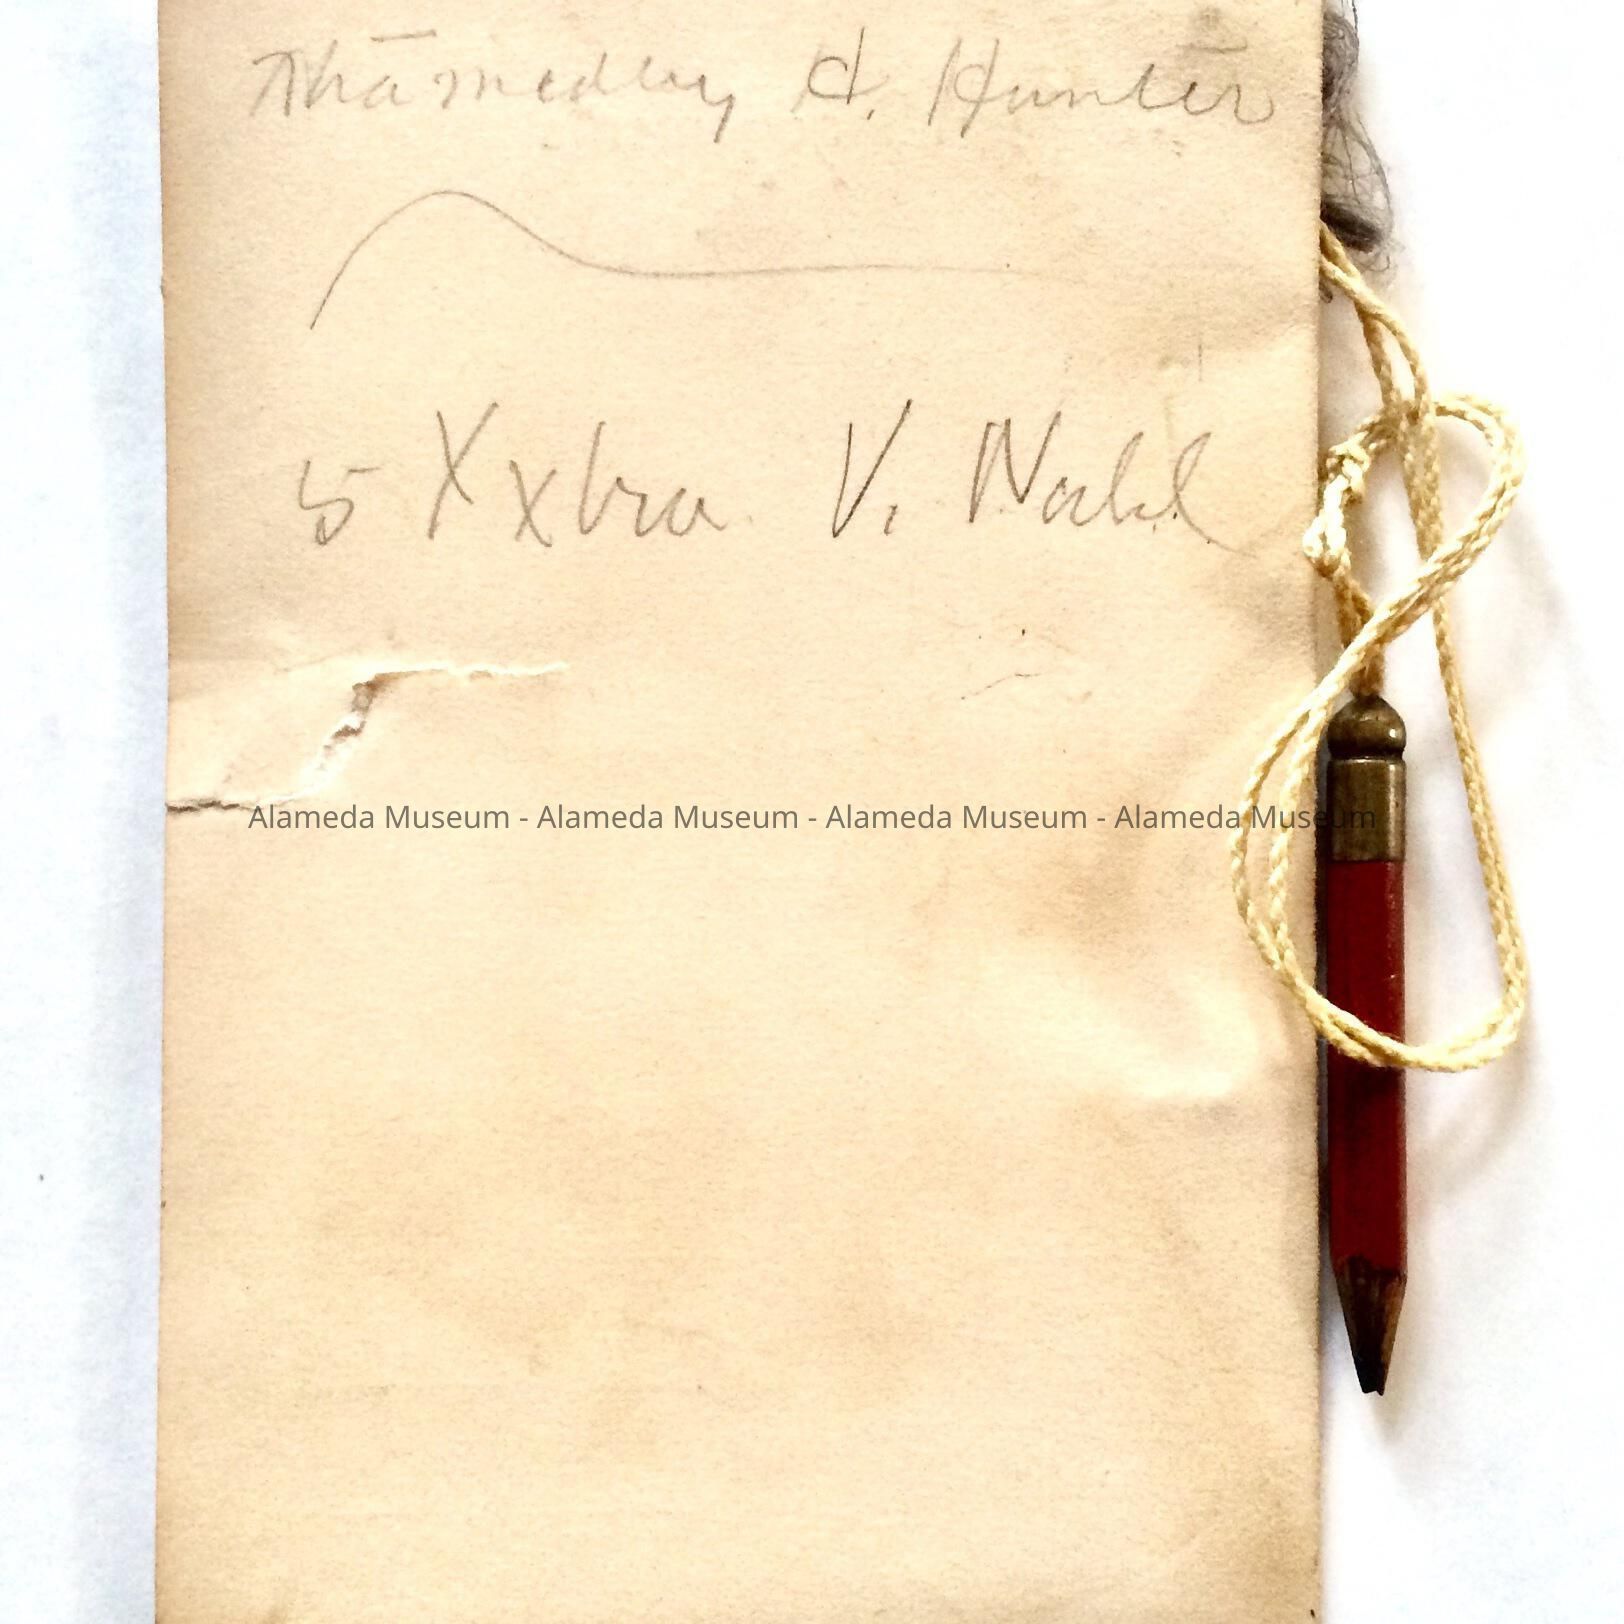 H. Hunter
5 Xxtra V. Nahl
Alameda Museum - Alameda Museum - Alameda Museum - Alameda Museum